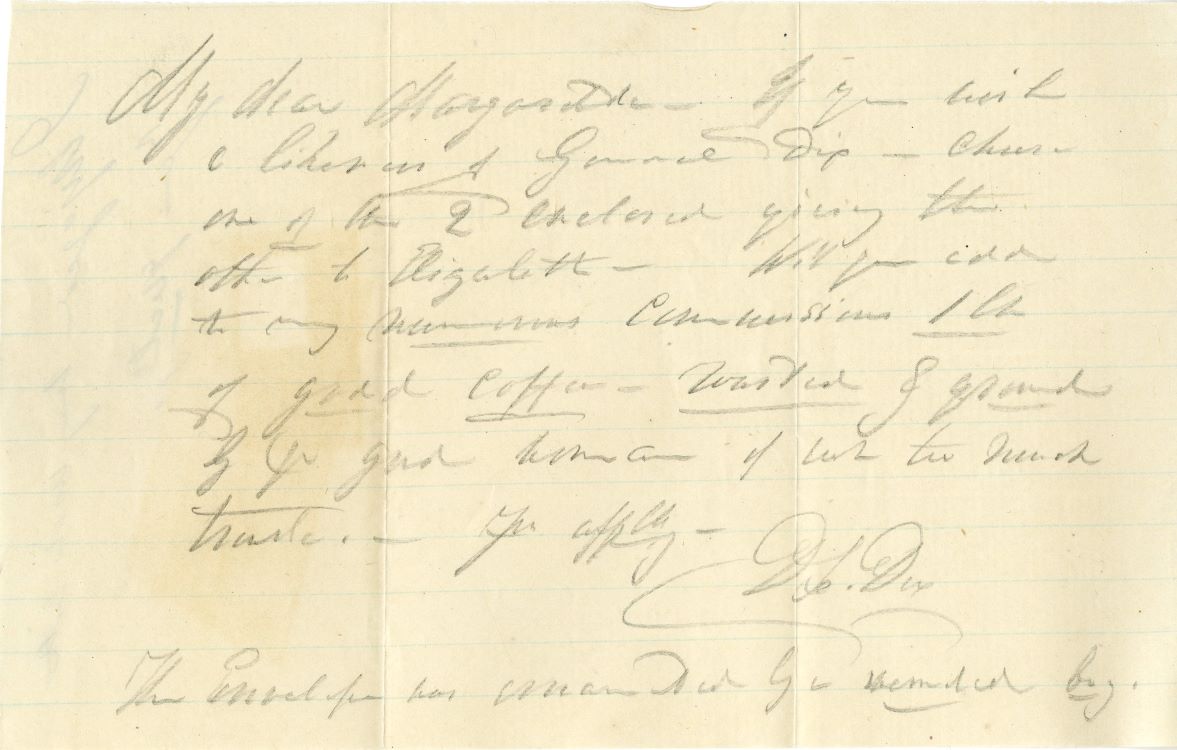 My dear Margaretta — If you wish
a likeness of General Dix — chose
one of the 2 enclosed giving the
other to Elizabeth — Will you add
to my numerous commissions 1 lb
of good coffee — roasted & ground
by yr good woman if not too much
trouble. — Yr affly —
D. L. Dix
The Envelope was ornamented by a wounded boy.